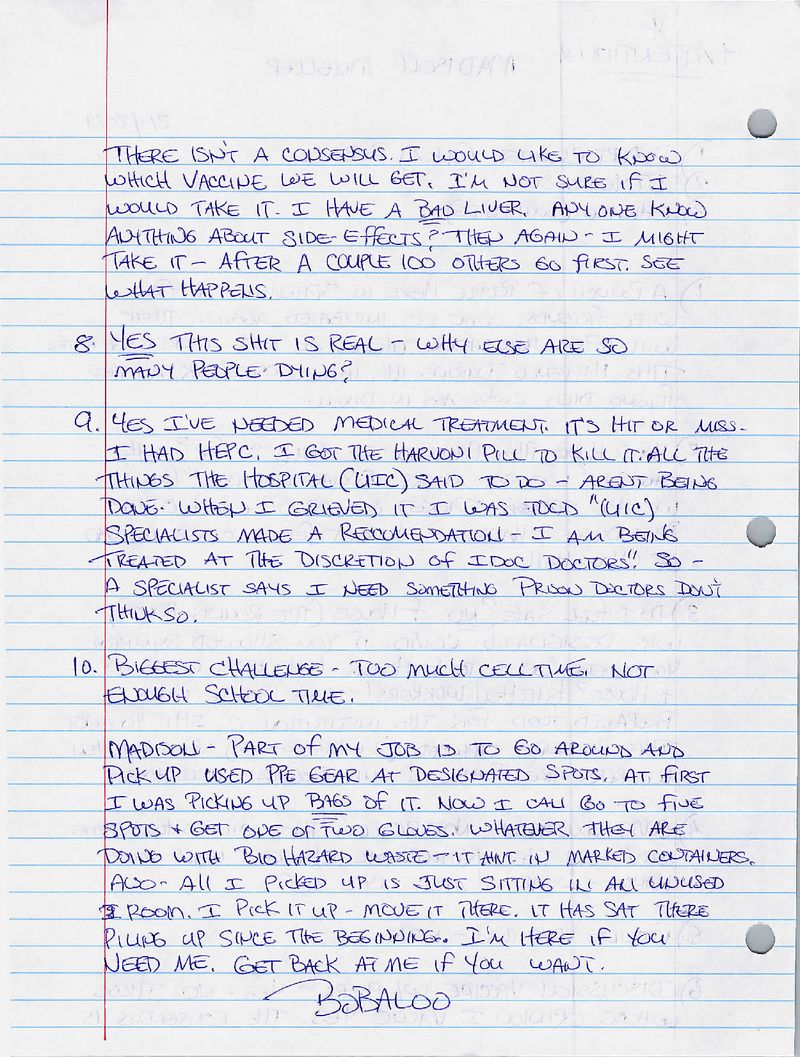 THERE ISN'T A CONSENSUS. I WOULD LIKE TO KNOW
WHICH VACCINE WE WILL GET. I'M NOT SURE IF I
WOULD TAKE IT. I HAVE A BAD LIVER. ANYONE KNOW
ANYTHING ABOUT SIDE-EFFECTS? THEN AGAIN - I MIGHT
TAKE IT - AFTER A COUPLE 100 OTHERS GO FIRST. SEE
WHAT HAPPENS.
8. YES THIS SHIT IS REAL - WHY ELSE ARE SO
MANY PEOPLE DYING?
9. YES I'VE NEEDED MEDICAL TREATMENT. IT'S HIT OR MISS.
I HAD HEPC. I GOT THE HARVONI PILL TO KILL IT. ALL THE
THINGS THE HOSPITAL (UIC) SAID TO DO - ARENT BEING
DONE. WHEN I GRIEVED IT I WAS TOLD "(UIC)
SPECIALISTS MADE A RECCOMENDATION - I AM BEING
TREATED AT THE DISCRETION OF IDOC DOCTORS". SO -
A SPECIALIST SAYS I NEED SOMETHING PRISON DOCTORS DON'T
THINK SO.
10. BIGGEST CHALLENGE - TOO MUCH CELL TIME. NOT
ENOUGH SCHOOL TIME.
MADISON - PART OF MY JOB IS TO GO AROUND AND
PICK UP USED PPE GEAR AT DESIGNATED SPOTS. AT FIRST
I WAS PICKING UP BAGS OF IT. NOW I CAN GO TO FIVE
SPOTS & GET ONE OR TWO GLOVES. WHATEVER THEY ARE
DOING WITH BIO HAZARD WASTE - IT AINT IN MARKED CONTAINERS.
ALSO - ALL I PICKED UP IS JUST SITTING IN AN UNUSED
ROOM. I PICK IT UP - MOVE IT THERE. IT HAS SAT THERE
PILING UP SINCE THE BEGINNING. I'M HERE IF YOU
NEED ME. GET BACK AT ME IF YOU WANT.
BOBALOO